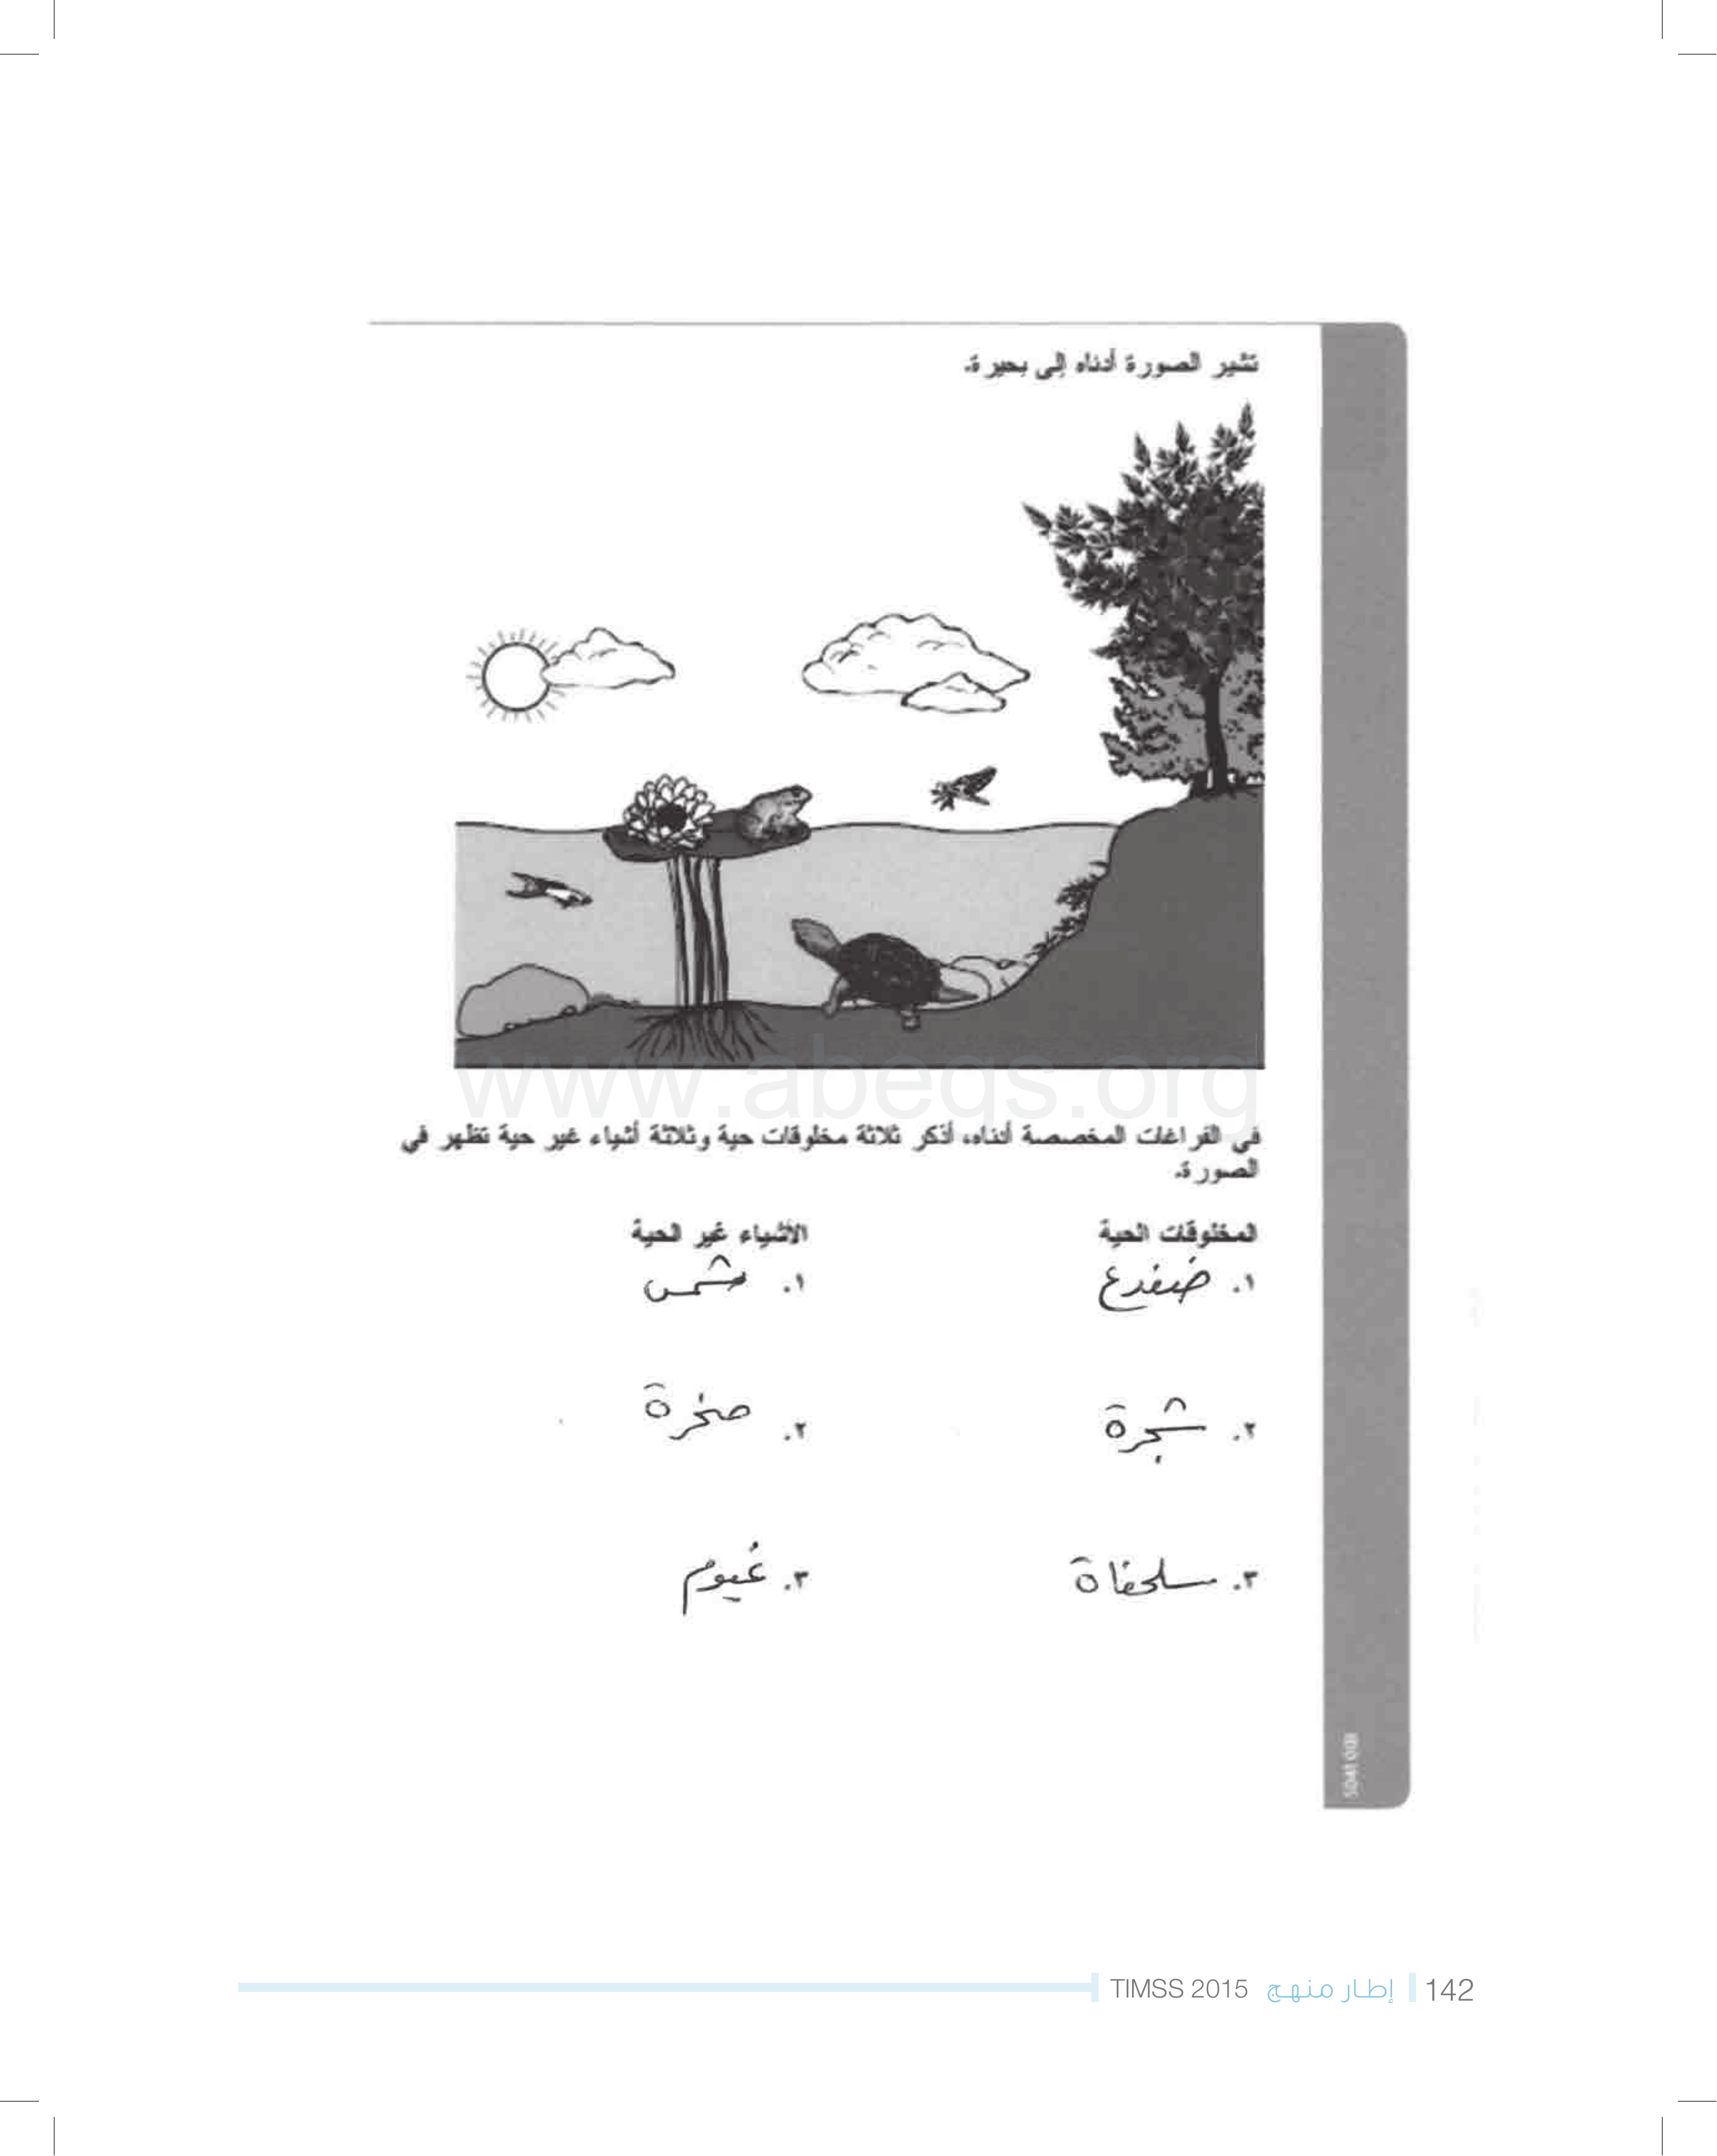 تشير الصورة أدناه إلى بحيرة.
www.abegs.org
في الفراغات المخصصة أدناه، أذكر ثلاثة مخلوقات حية وثلاثة أشياء غير حية تظهر في
الصورة.
المخلوقات الحية
الأشياء غير الحية
١. ضفدع
١. شمس
٢. شجرة
٢. صخرة
٣. سلحفاة
٣. غيوم
142 إطار منهج TIMSS 2015